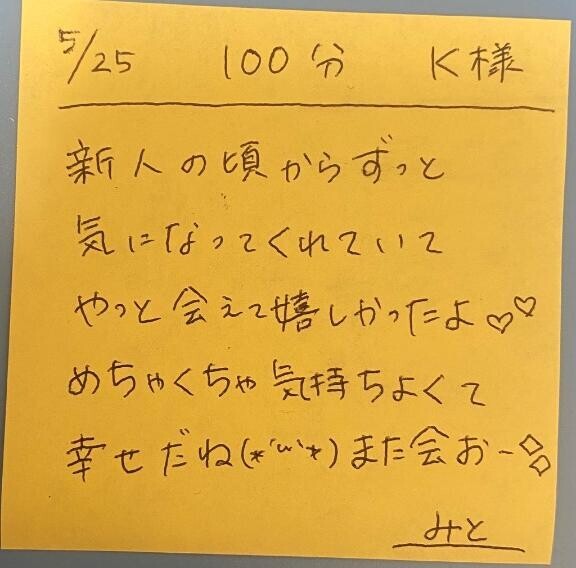 5/25 100分 K様
新人の頃からずっと
気になってくれていて
やっと会えて嬉しかったよ♡♡
めちゃくちゃ気持ちよくて
幸せだね(*'ω'*)また会おー◇◇
みと